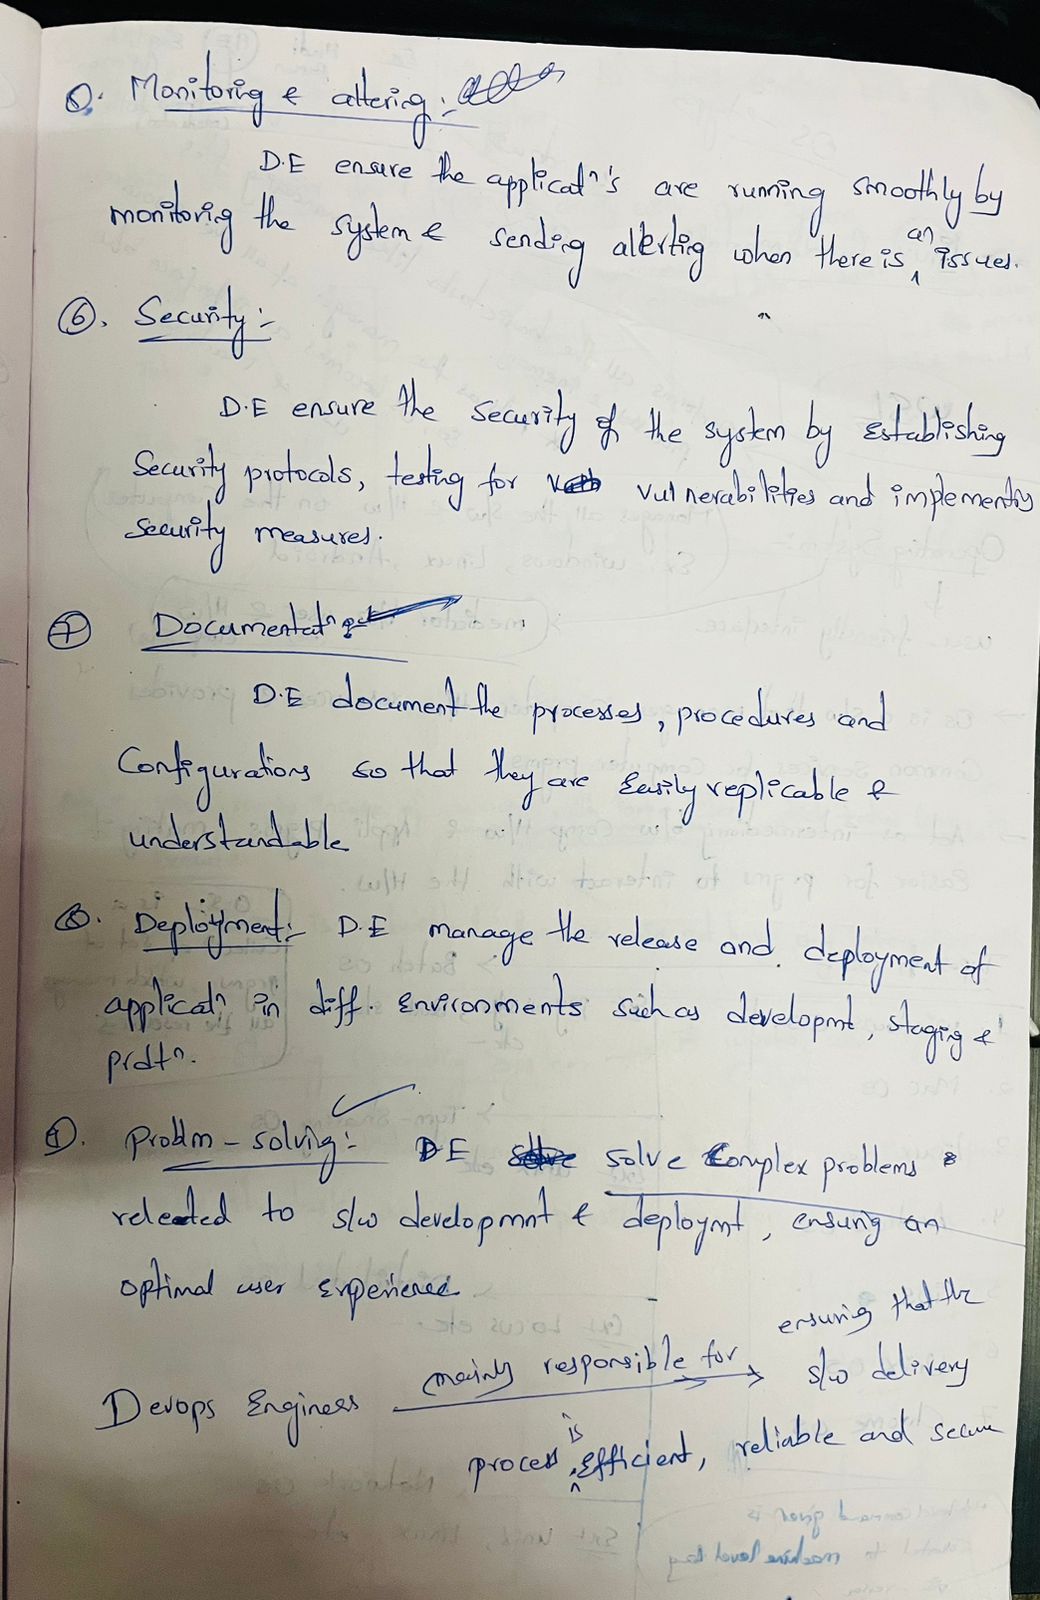 5. Monitoring & altering :-
D.E ensure the applicatⁿ's are running smoothly by
monitoring the system & sending alerting when there is an issues.
6. Security :-
D.E ensure the security of the system by establishing
Security protocols, testing for vulnerabilities and implementing
security measures.
7 Documentatⁿ :-
D.E document the processes, procedures and
Configurations so that they are easily replicable &
understandable
8. Deployment :- D.E manage the release and deployment of
applicatⁿ in diff. environments such as developmt, staging &
prdtⁿ.
9. problm - solving :- DE solve complex problems
releated to s/w developmnt & deploymt, ensuring an
optimal user experience
ensuring that the
Devops Engineers mainly responsible for s/w delivery
process is efficient, reliable and secure